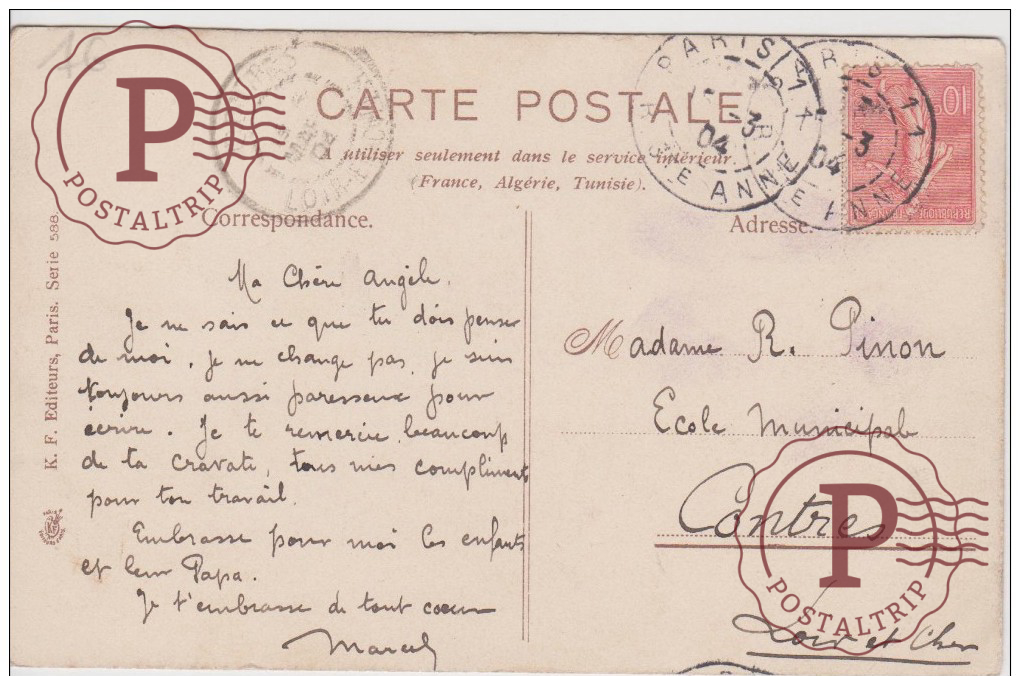 16
CARTE POSTALE
A utiliser seulement dans le service intérieur.
(France, Algérie, Tunisie).
Correspondance.
Ma Chère Angèle.
Je ne sais ce que tu dois penser
de moi. Je ne change pas, je suis
toujours aussi paresseux pour
écrire. Je te remercie beaucoup
de ta cravate, tous mes compliments
pour ton travail.
Embrasse pour moi les enfants
et leur Papa.
Je t'embrasse de tout coeur
Marcel
K. F. Editeurs, Paris. Serie 588.
Adresse.
Madame R. Pinon
Ecole Municipale
Contres
Loir et Cher
PARIS 11
-3
04
Bᴰ RICHARD
PARIS 11
-3
04
LOIR-ET-CHER
MARS
04
10c
REPUBLIQUE FRANÇAISE
P
POSTALTRIP
P
POSTALTRIP